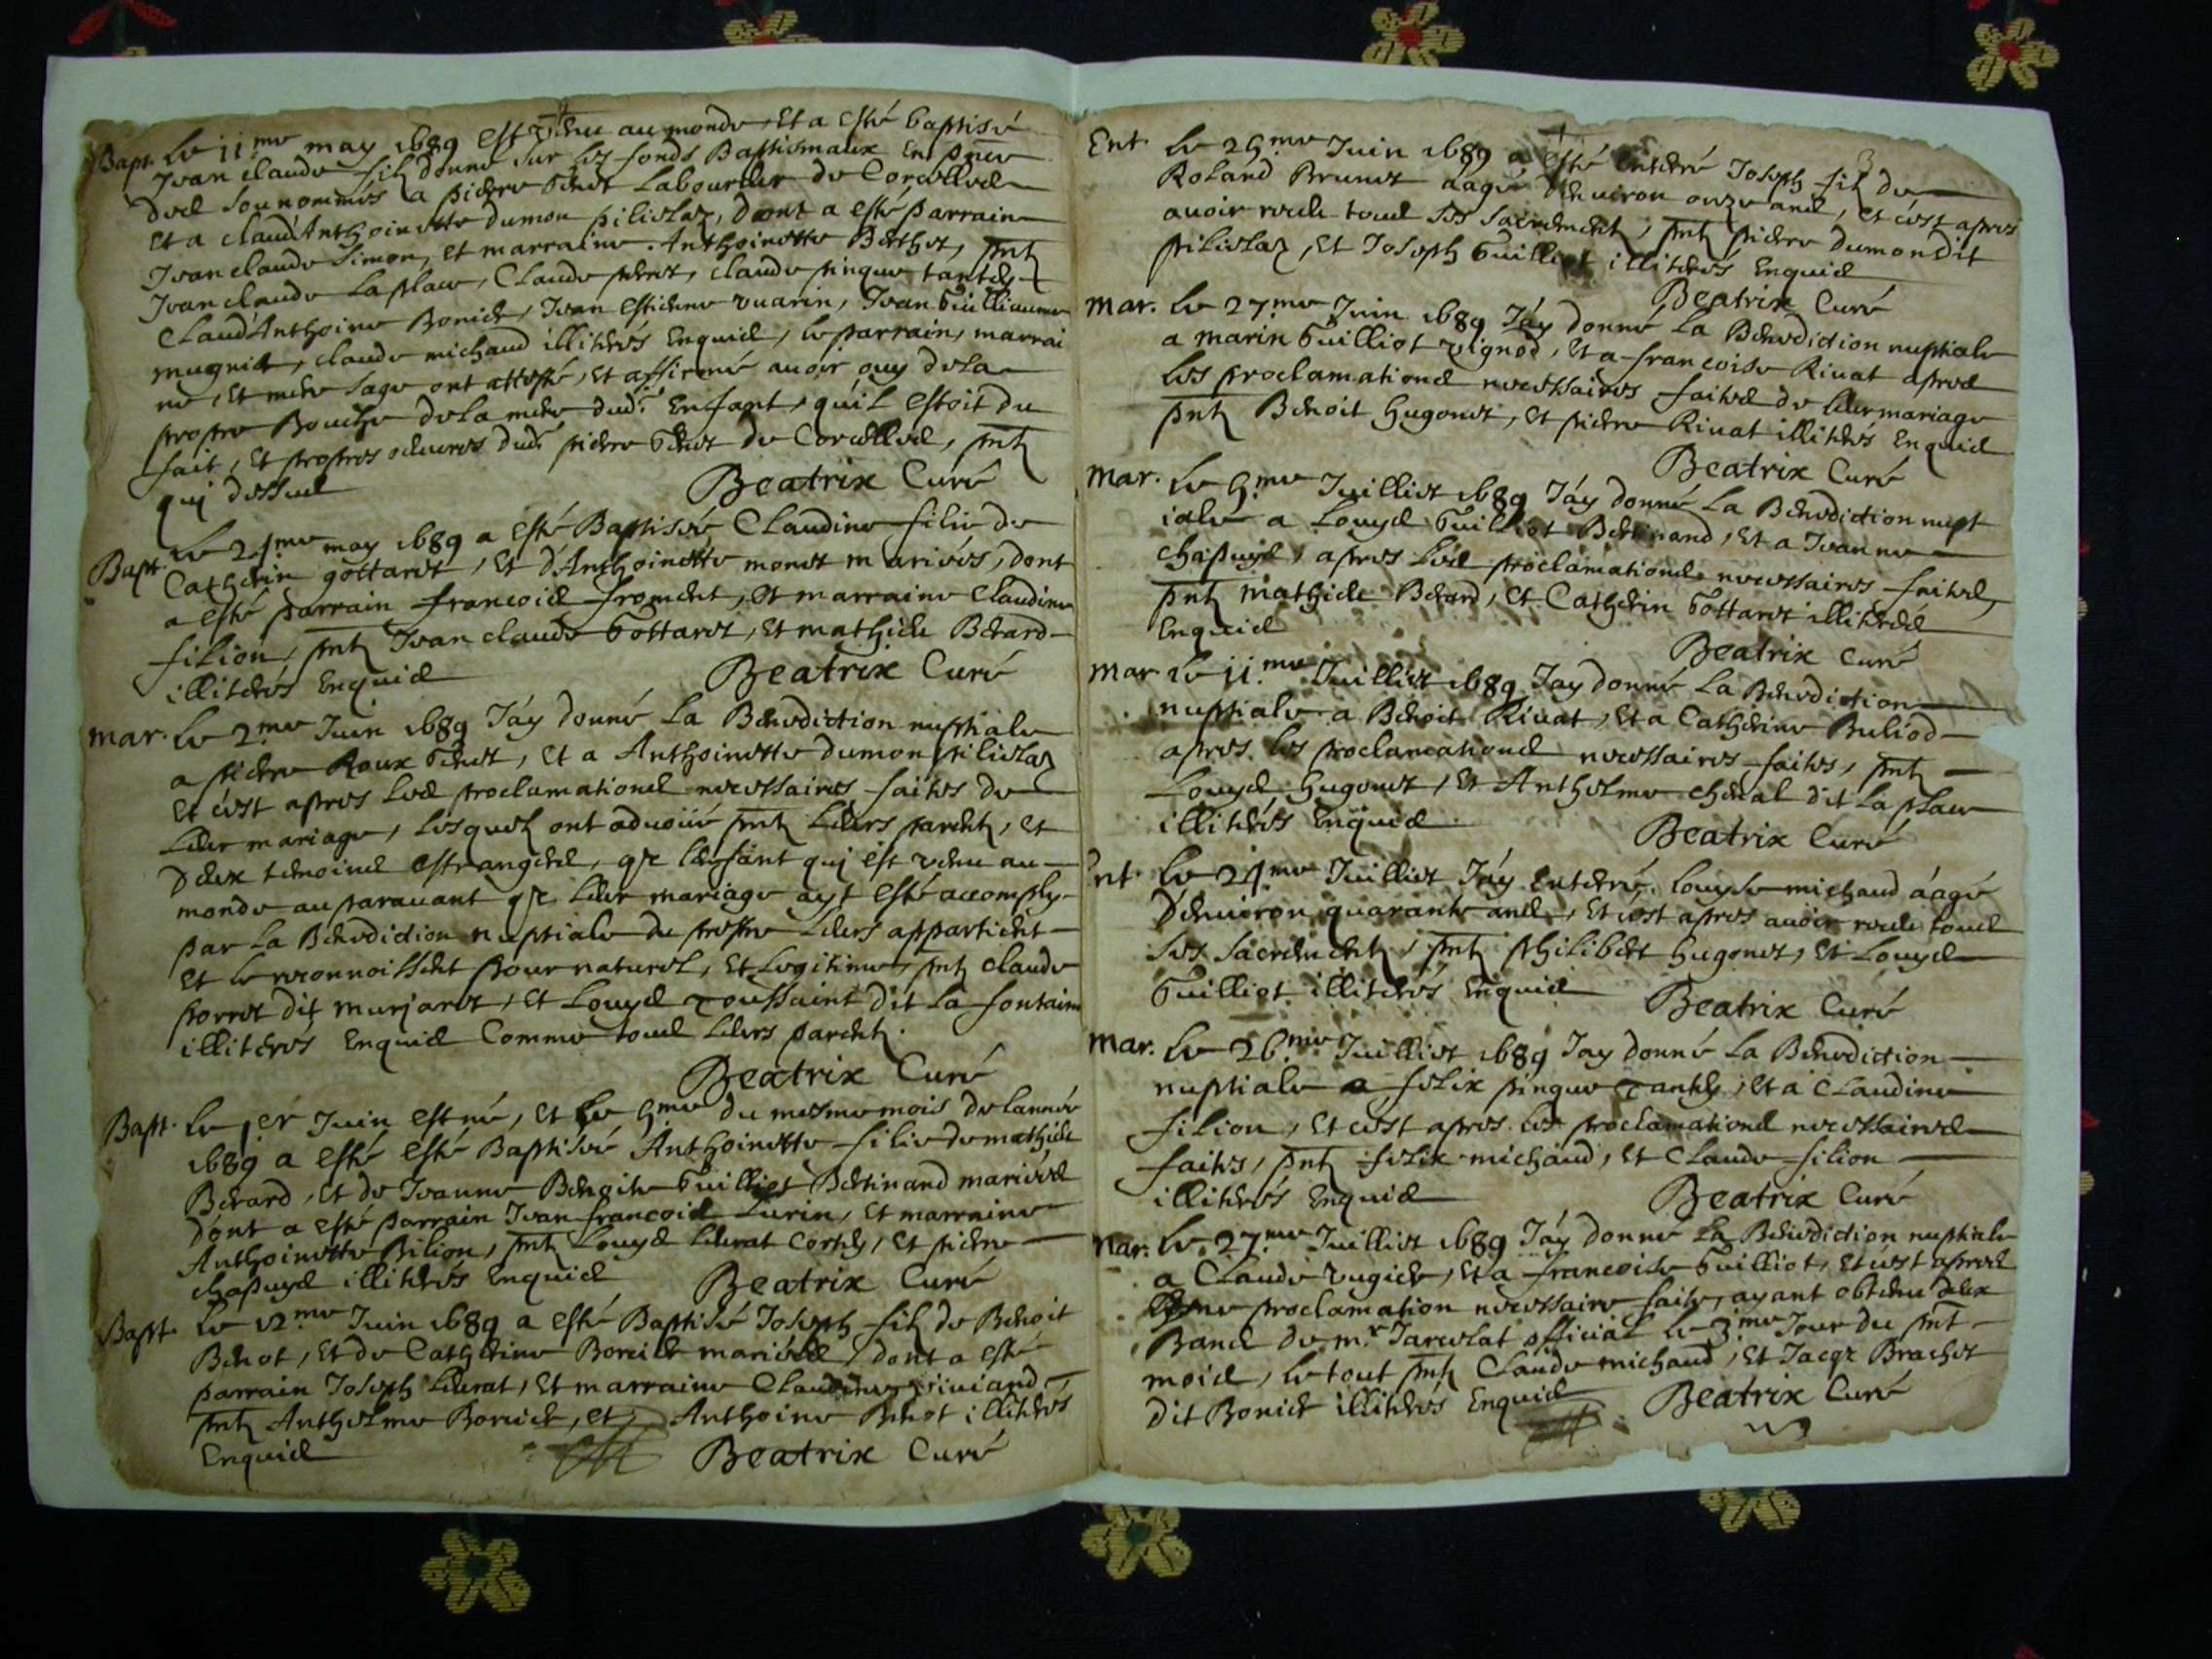 Bapt. Le 11.me may 1689 est venu au monde, Et a esté baptisé
Jean claude filz donné sur les fonds Baptismaux En pnce
des sounommés a pierre Genet Laboureur de Corcelles
Et a claud'Anthoinette dumon pilieslaz, dont a esté parrain
Jean claude Simon, et marraine Anthoinette Berthet, pntz
Jean claude Laplace, Claude perret, claude pingue tantely
Claud'Anthoine Bonier, Jean estienne vuarin, Jean Guilliaume
mugnier, claude michaud illiterés Enquis, le parrain, marrai
ne, Et mere sage ont attesté, et affirmé avoir ouy de la
propre Bouche de la mere dud.t Enfant, qu'il estoit du
fait, Et propres oeuvres dud.t pierre Genet de Corcelles, pntz
qui dessus
Beatrix Curé
Bapt. Le 24me may 1689 a esté Baptisée Claudine filie de
Catherin gottaret, Et d'Anthoinette monet mariées, dont
a esté parrain francois froment, et marraine Claudine
filion, pntz Jean claude Gottaret, Et mathieu Berard
illiterés Enquis
Beatrix Curé
Mar. Le 2.me Juin 1689 J'ay donné La Benediction nuptiale
a pierre Roux Genet, Et a Anthoinette dumon pilieslaz
Et c'est apres Les proclamations necessaires faites de
Leur mariage, lesquelz ont advoüé pntz Leurs parentz, et
Deux temoins estrangers, q̃ L'enfant qui est venu au
monde auparavant q̃ Leur mariage ayt esté accomply
par La Benediction nuptiale du prestre Leurs appartient
Et Le reconnoissent pour naturel, Et Legitime, pntz claude
porret dit murjaret, Et Louys Toussaint dit La fontaine
illiterés Enquis Comme tous Leurs parentz.
Beatrix Curé
Bapt. Le 1er Juin est né, Et Le 5me du mesme mois de lannée
1689 a esté esté Baptisée Anthoinette filie de mathieu
Berard, Et de Jeanne Benoite Guilliot Bertinand mariées
dont a esté parrain Jean francois Lurin, Et marraine
Anthoinette Bilion, pntz Louys Leurat Cortey, Et pierre
chapuys illiterés Enquis
Beatrix Curé
Bapt. Le 12me Juin 1689 a esté Baptisé Joseph filz de Benoit
Benot, Et de Catherine Bonier mariées, dont a esté
parrain Joseph Leurat, Et marraine Claudine
pntz Anthelme Bonier, et Anthoine Benot illiterés
Enquis
Beatrix Curé
3
Ent. Le 25me Juin 1689 a esté enterré Joseph filz de
Roland Brunet aagé d'environ onze ans, et c'est apres
avoir receu tous ses sacrementz, pntz pierre dumon dit
pilieslaz, Et Joseph Guilliot illiterés Enquis
Beatrix Curé
Mar. Le 27me Juin 1689 J'ay donné La Benediction nuptiale
a marin Guilliot vignod, Et a francoise Rivat apres
Les proclamations necessaires faites de leur mariage
pntz Benoit hugonet, Et pierre Rivat illiterés Enquis
Beatrix Curé
Mar. Le 5me Juilliet 1689 J'ay donné La Benediction nupt
iale a Louys Guilliot Bertinand, Et a Jeanne
chapuys, apres Les proclamations necessaires faites,
pntz mathieu Berard, et Catherin Gottaret illiterés
Enquis
Beatrix Curé
Mar Le 11.me Juilliet 1689 J'ay donné La Benediction
nuptiale a Benoit Rivat, Et a Catherine Buliod
apres Les proclamations necessaires faites, pntz
Louys hugonet, Et Anthelme cheval dit La place
illiterés Enquis
Beatrix Curé
Ent. Le 24me Juilliet J'ay enterré Louyse michaud aagé
d'environ quarante ans, Et c'est apres avoir receu tous
ses sacrementz, pntz philibert hugonet, Et Louys
Guilliot illiterés Enquis
Beatrix Curé
Mar. Le 26.me Juilliet 1689 J'ay donné La Benediction
nuptiale a felix pingue tantely, Et a Claudine
filion, Et c'est apres Les proclamations necessaires
faites, pntz felix michaud, Et Claude filion
illiterés Enquis
Beatrix Curé
Mar. Le 27.me Juilliet 1689 J'ay donné La Benediction nuptiale
a Claude vugier, Et a francoise Guilliot, Et c'est apres
proclamation necessaire faite, ayant obtenu deux
Bans de m.r Jarcelat official Le 3.me Jour du pnt
mois, Le tout pntz Claude michaud, Et Jacq̃ Brachet
dit Bonier illiterés Enquis
Beatrix Curé